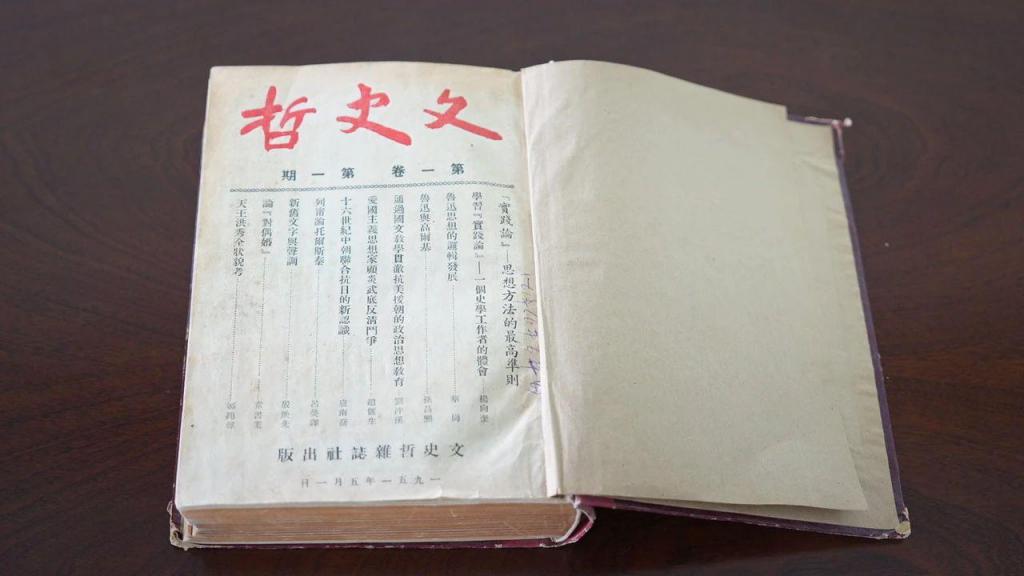 文史哲
第一卷 第一期
『實踐論』——思想方法的最高準則
學習『實踐論』——一個史學工作者的體會……楊向奎
魯迅思想的邏輯發展……華崗
魯迅與高爾基……孫昌熙
通過國文教學貫徹抗美援朝的政治思想教育……劉泮溪
愛國主義思想家顧炎武底反清鬥爭……趙儷生
十六世紀中朝聯合抗日的新認識……
列甯論托爾斯泰……呂熒譯
新舊文字與聲調……殷煥先
論『對偶婚』……童書業
天王洪秀全狀貌考……
文史哲雜誌社出版
一九五一年五月一日